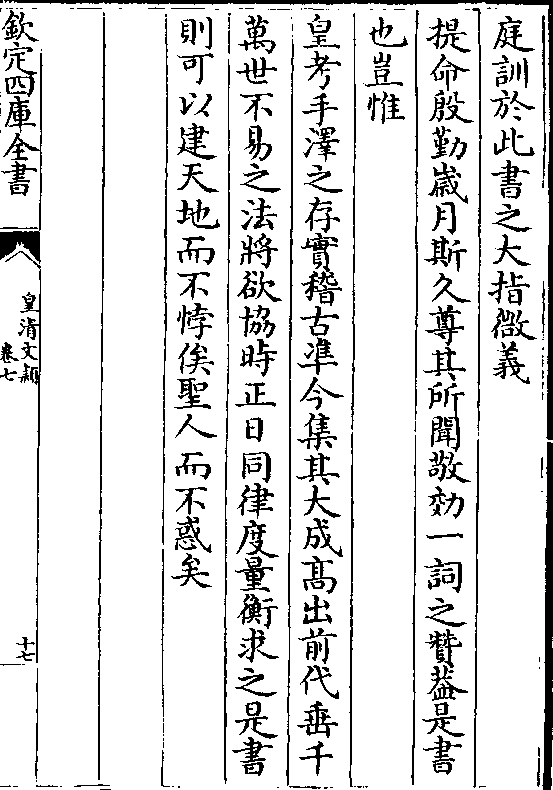 庭訓於此書之大指微義
提命殷勤歳月斯久尊其所聞敬効一詞之賛葢是書
也豈惟
皇考手澤之存實稽古凖今集其大成髙出前代垂千
萬世不易之法將欲協時正日同律度量衡求之是書
則可以建天地而不悖俟聖人而不惑矣
欽定四庫全書
皇清文穎
卷七
十七